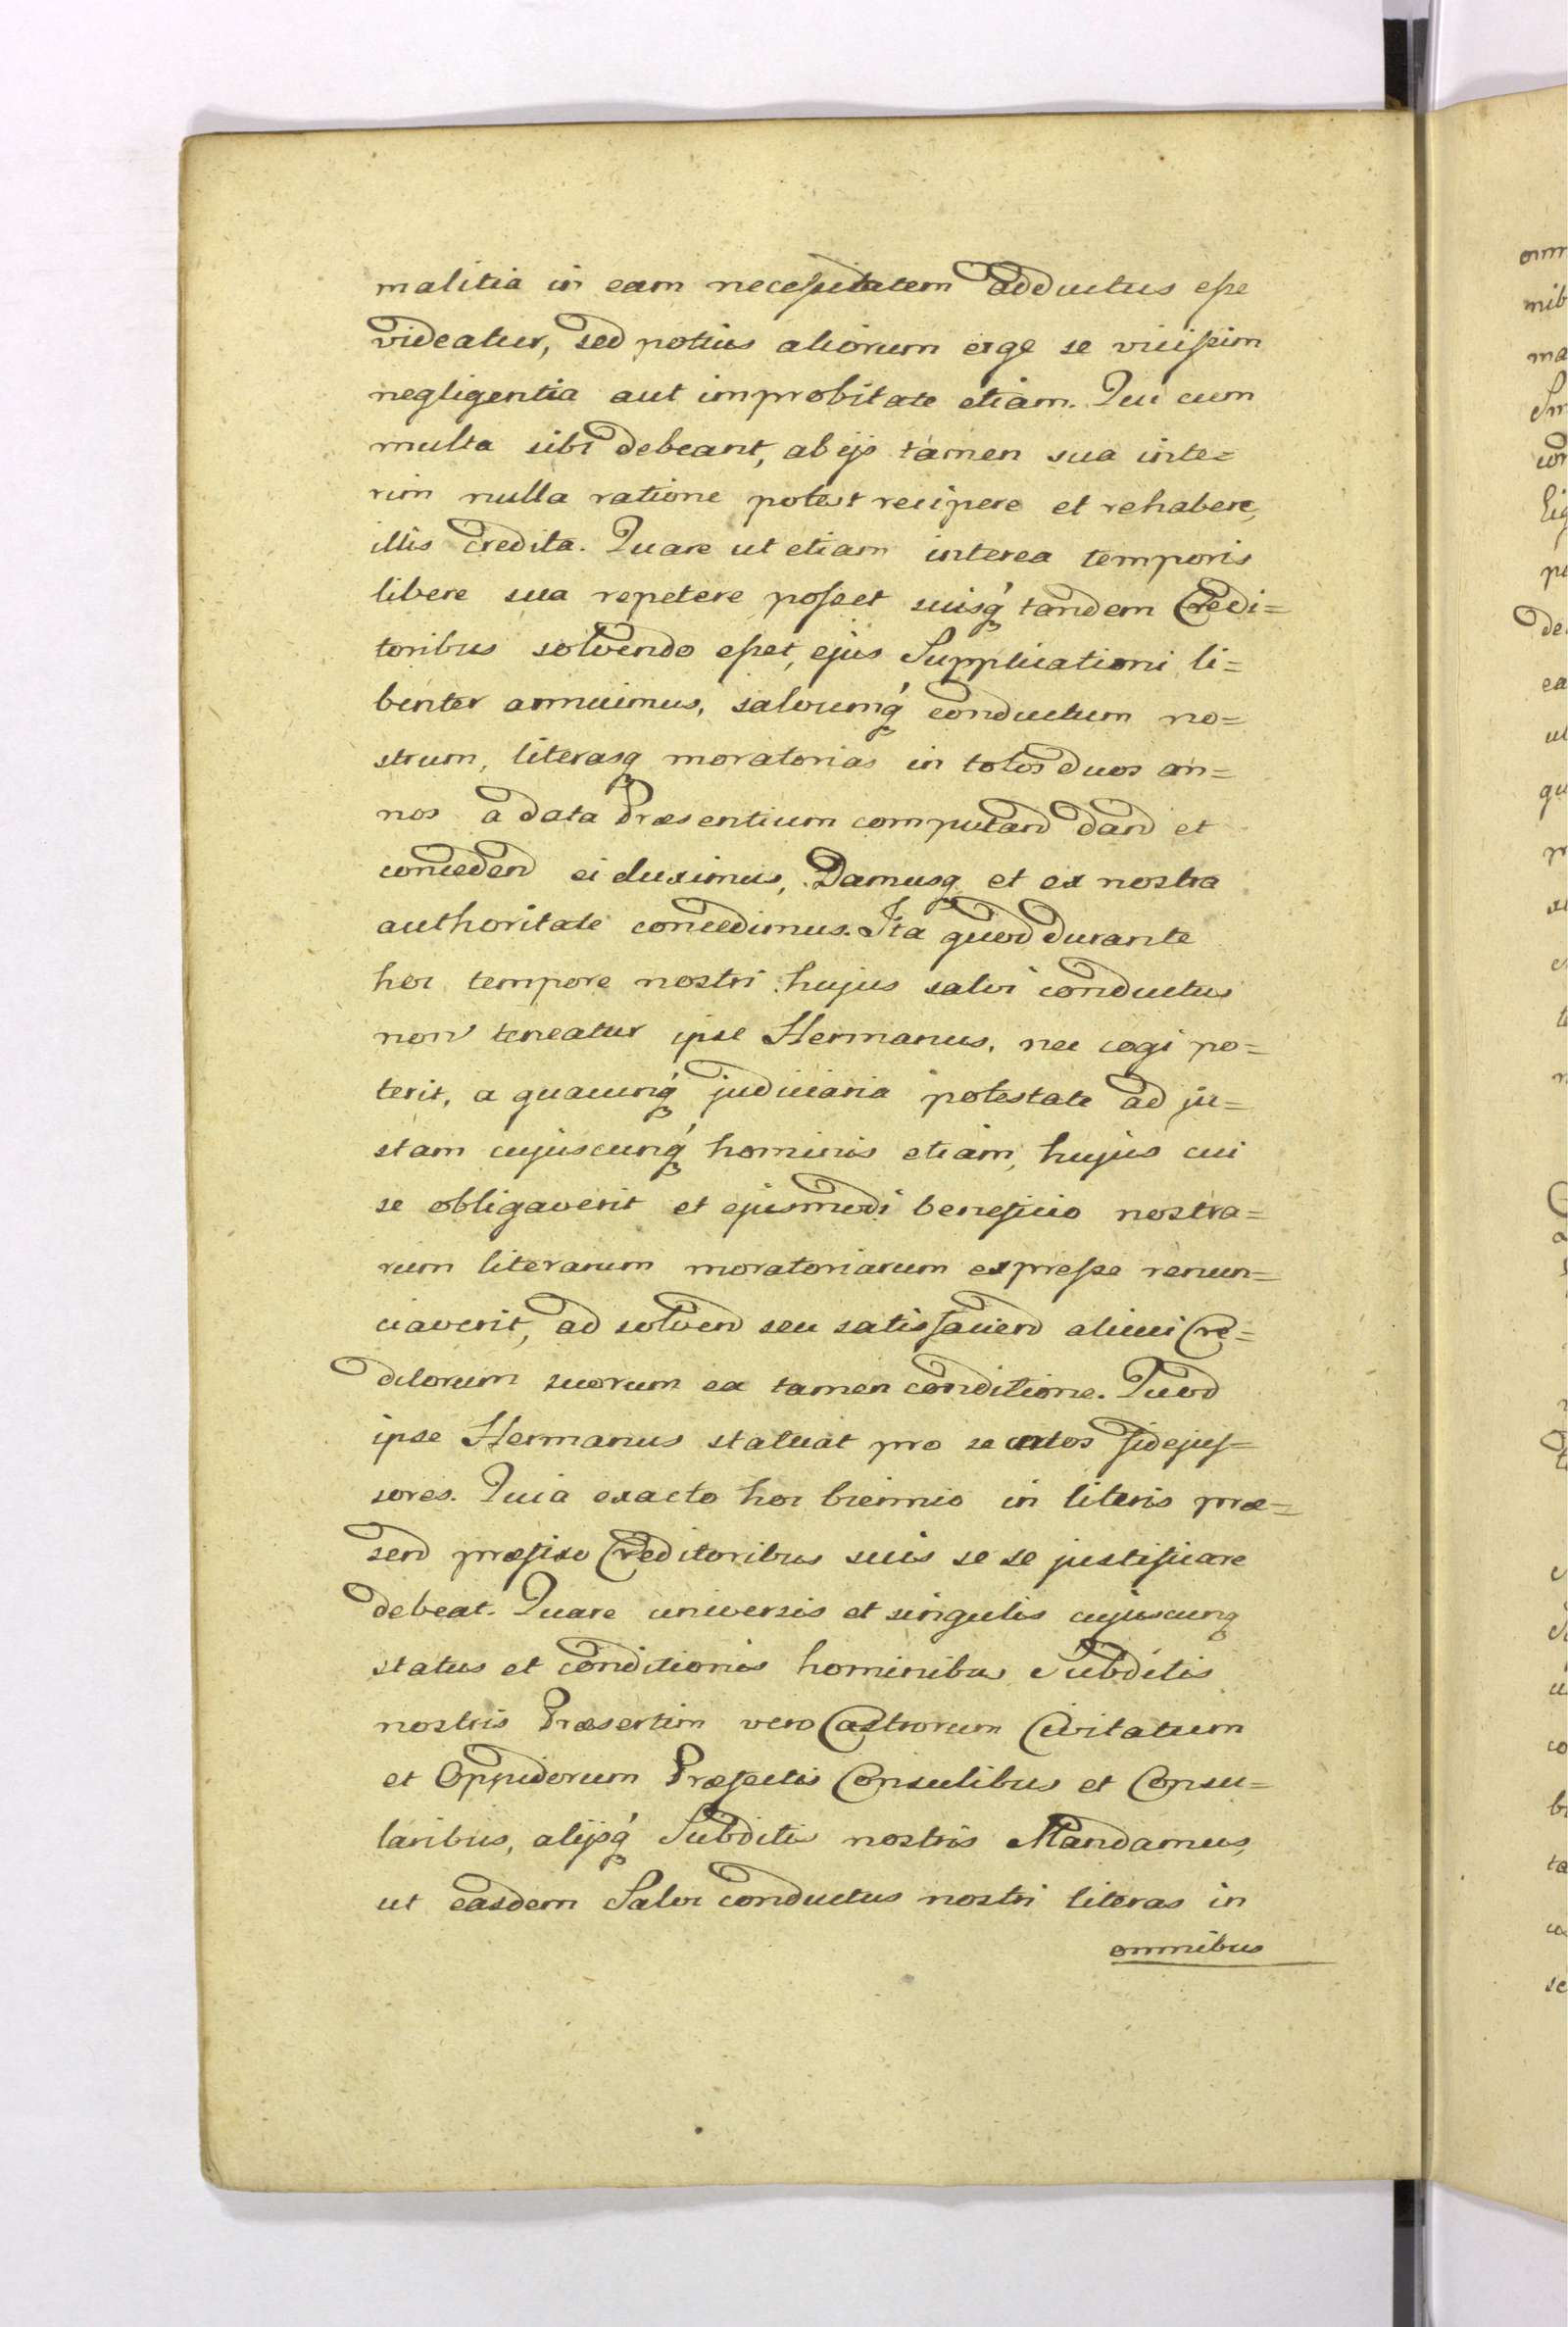 malitia in eam necessitatem adductus esse
videatur, sed potius aliorum erga se vicissim
negligentia aut improbitate etiam. Qui cum
multa sibi debeant, ab ijs tamen sua inte=
rim nulla ratione potest recipere et rehabere,
illis credita. Quare ut etiam interea temporis
libere sua repetere posset suisq́ tandem Credi=
toribus solvendo esset, ejus Supplicationi li=
benter annuimus, salvumq́ conductum no=
strum, literasq moratorias in totos duos an=
nos a data Præsentium computand dand et
conceden̄d ei duximus, Damusq et ex nostra
authoritate concedimus. Ita quod durante
hoc tempore nostri hujus salvi conductus
non teneatur ipse Hermanus, nec cogi po=
terit, a quacunq́ judiciaria potestate ad ju=
stam cujuscunq́ hominis etiam, hujus cui
se obligaverit et ejusmodi beneficio nostra=
rum literarum moratoriarum expresse renun=
ciaverit, ad solvend seu satisfaciend alicui Cre=
ditorum suorum ea tamen conditione. Quod
ipse Hermanus statuat pro se certos fidejus=
sores. Quia exacto hoc biennio in literis præ=
send præfixo Creditoribus suis se se justificare
debeat. Quare universis et singulis cujuscunq
status et conditionis hominibus Subditis
nostris Præsertim vero Castrorum Civitatum
et Oppidorum Præfectis Consulibus et Consu=
laribus, alijsq́ Subditis nostris Mandamus,
ut easdem Salvi conductus nostri literas in
omnibus